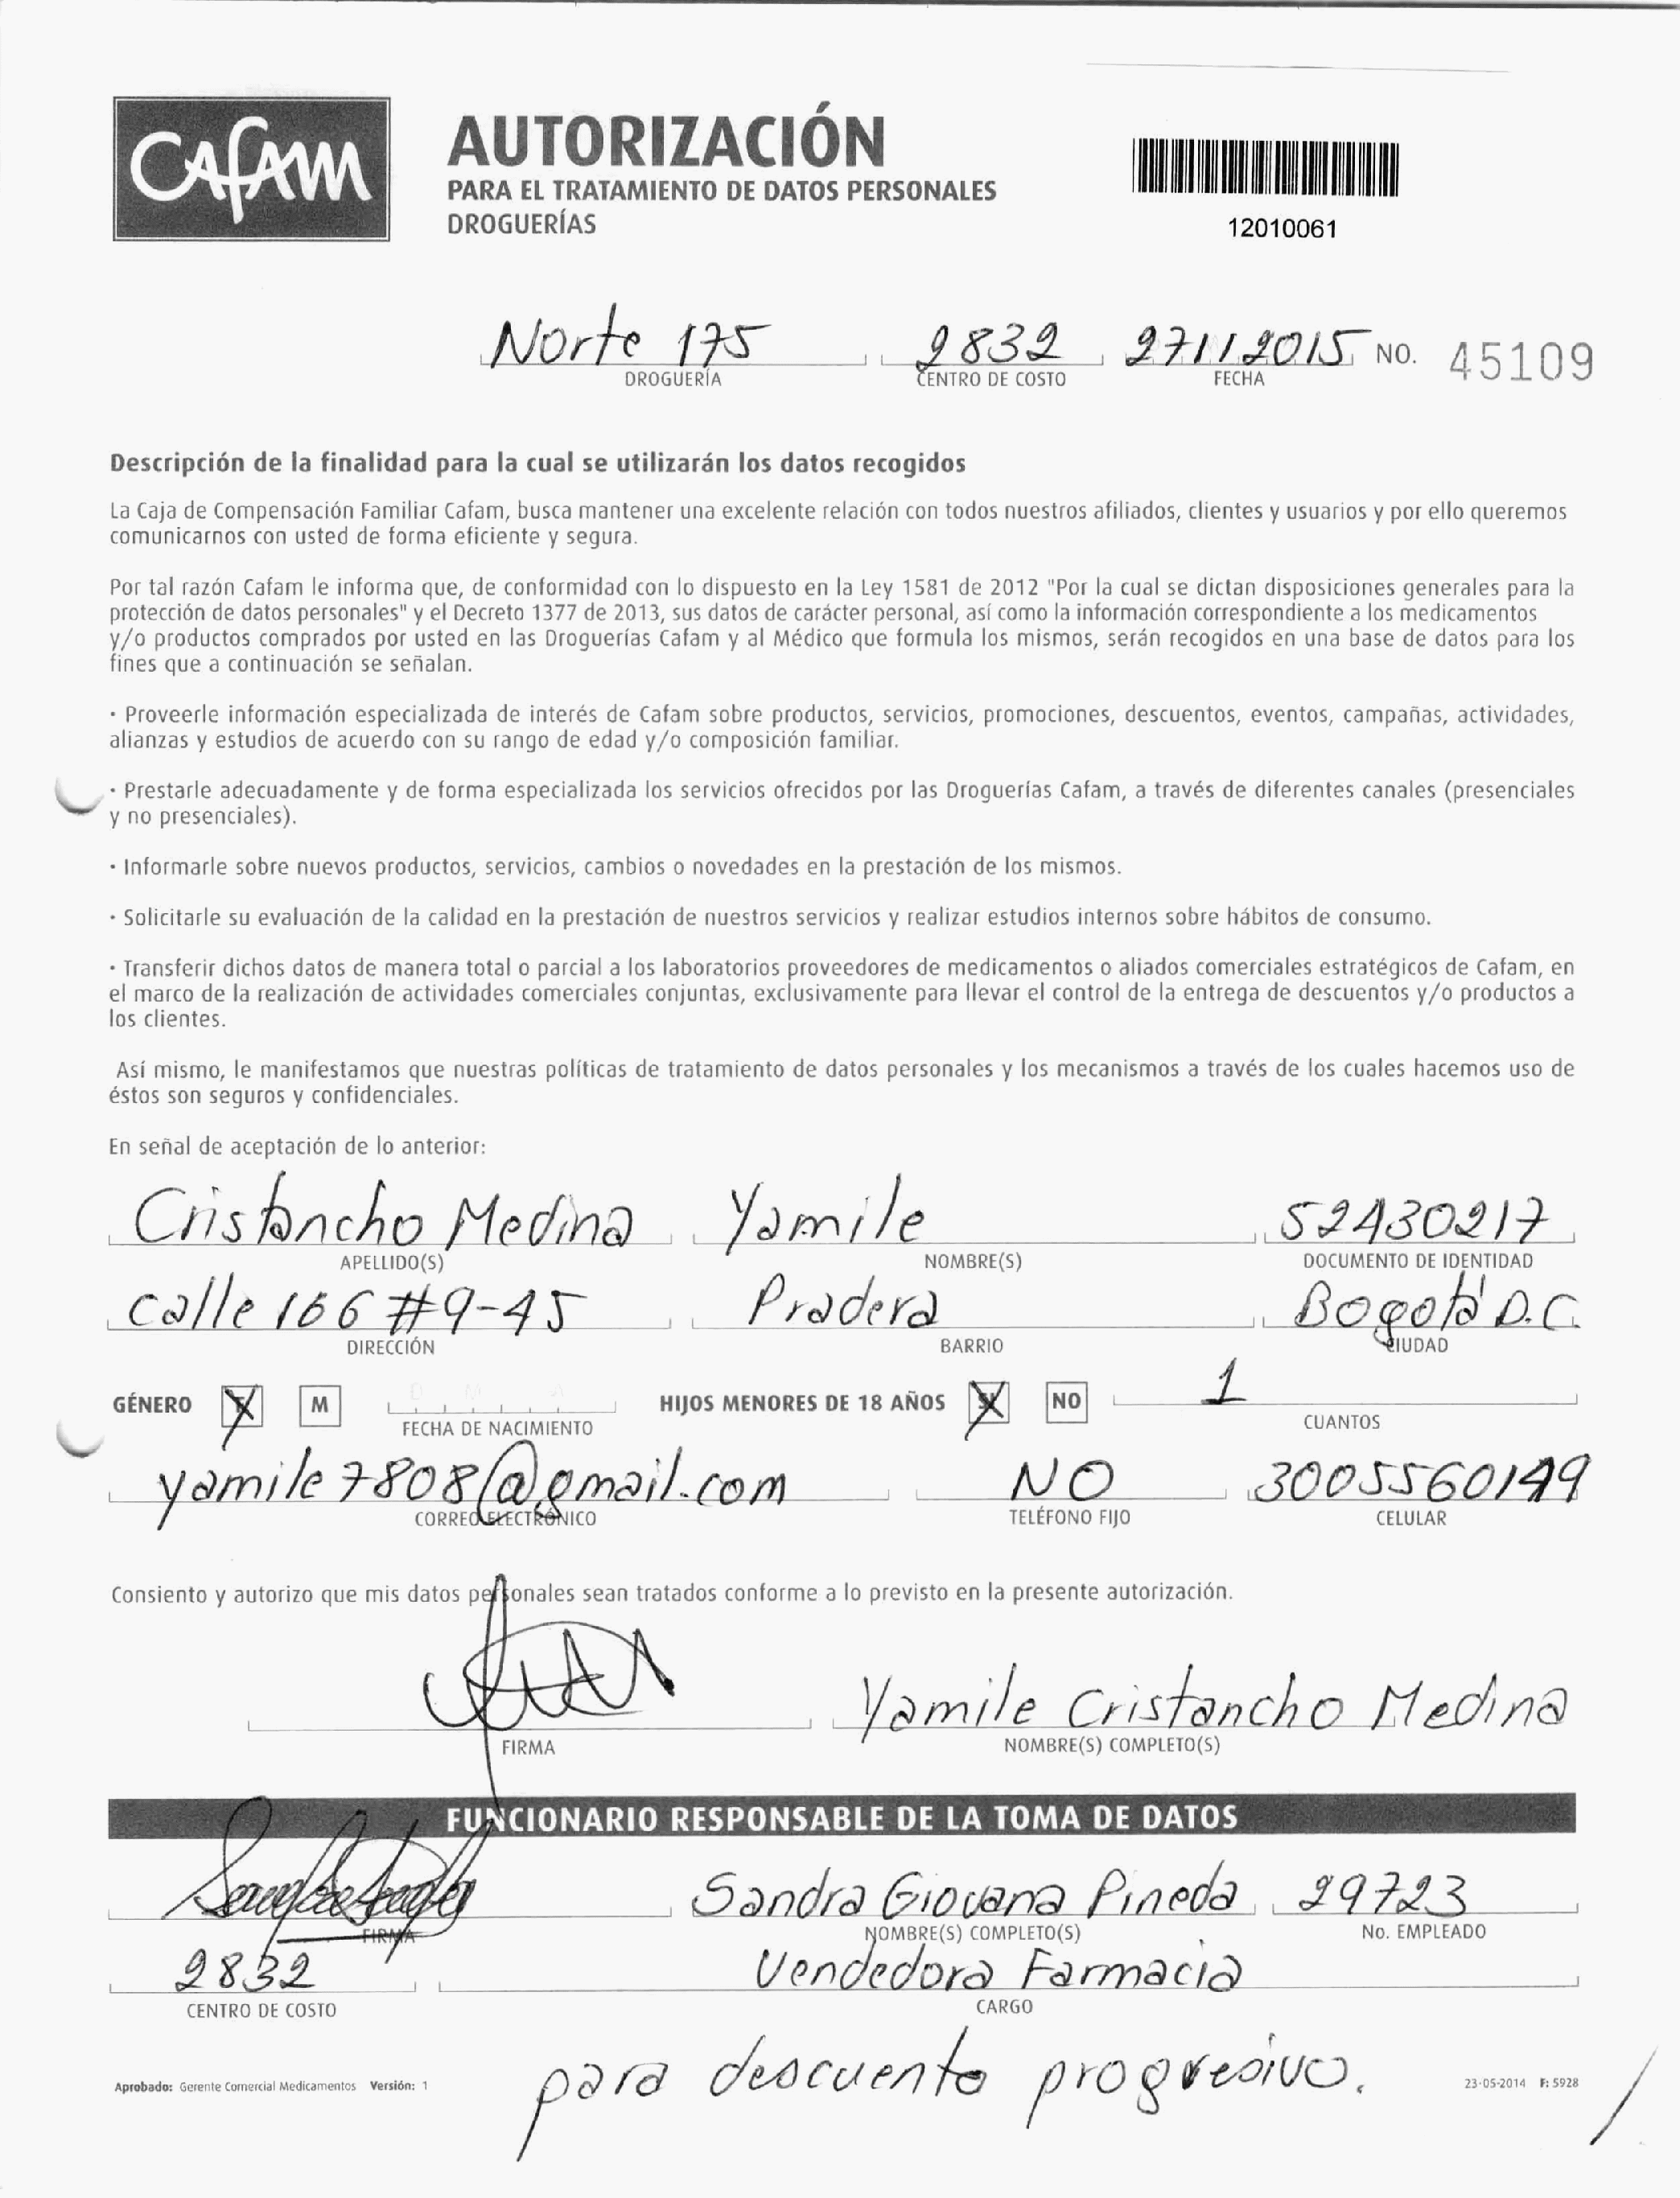 CAFAM
AUTORIZACIÓN
PARA EL TRATAMIENTO DE DATOS PERSONALES
DROGUERÍAS
12010061
Norte 175 2832 27112015 NO. 45109
DROGUERÍA CENTRO DE COSTO FECHA
Descripción de la finalidad para la cual se utilizarán los datos recogidos
La Caja de Compensación Familiar Cafam, busca mantener una excelente relación con todos nuestros afiliados, clientes y usuarios y por ello queremos
comunicarnos con usted de forma eficiente y segura.
Por tal razón Cafam le informa que, de conformidad con lo dispuesto en la Ley 1581 de 2012 "Por la cual se dictan disposiciones generales para la
protección de datos personales" y el Decreto 1377 de 2013, sus datos de carácter personal, así como la información correspondiente a los medicamentos
y/o productos comprados por usted en las Droguerías Cafam y al Médico que formula los mismos, serán recogidos en una base de datos para los
fines que a continuación se señalan.
· Proveerle información especializada de interés de Cafam sobre productos, servicios, promociones, descuentos, eventos, campañas, actividades,
alianzas y estudios de acuerdo con su rango de edad y/o composición familiar.
· Prestarle adecuadamente y de forma especializada los servicios ofrecidos por las Droguerías Cafam, a través de diferentes canales (presenciales
y no presenciales).
· Informarle sobre nuevos productos, servicios, cambios o novedades en la prestación de los mismos.
· Solicitarle su evaluación de la calidad en la prestación de nuestros servicios y realizar estudios internos sobre hábitos de consumo.
· Transferir dichos datos de manera total o parcial a los laboratorios proveedores de medicamentos o aliados comerciales estratégicos de Cafam, en
el marco de la realización de actividades comerciales conjuntas, exclusivamente para llevar el control de la entrega de descuentos y/o productos a
los clientes.
Así mismo, le manifestamos que nuestras políticas de tratamiento de datos personales y los mecanismos a través de los cuales hacemos uso de
éstos son seguros y confidenciales.
En señal de aceptación de lo anterior:
Cristancho Medina Yamile 52430217
APELLIDO(S) NOMBRE(S) DOCUMENTO DE IDENTIDAD
calle 166 #9-45 Pradera Bogotá D.C.
DIRECCIÓN BARRIO CIUDAD
GÉNERO X M HIJOS MENORES DE 18 AÑOS X NO 1
FECHA DE NACIMIENTO CUANTOS
yamile7808@gmail.com NO 3005560149
CORREO ELECTRÓNICO TELÉFONO FIJO CELULAR
Consiento y autorizo que mis datos personales sean tratados conforme a lo previsto en la presente autorización.
Yamile Cristancho Medina
FIRMA NOMBRE(S) COMPLETO(S)
FUNCIONARIO RESPONSABLE DE LA TOMA DE DATOS
Sandra Giovana Pineda 29723
FIRMA NOMBRE(S) COMPLETO(S) No. EMPLEADO
2832 Vendedora Farmacia
CENTRO DE COSTO CARGO
para descuento progresivo.
Aprobado: Gerente Comercial Medicamentos Versión: 1 23-05-2014 F: 5928